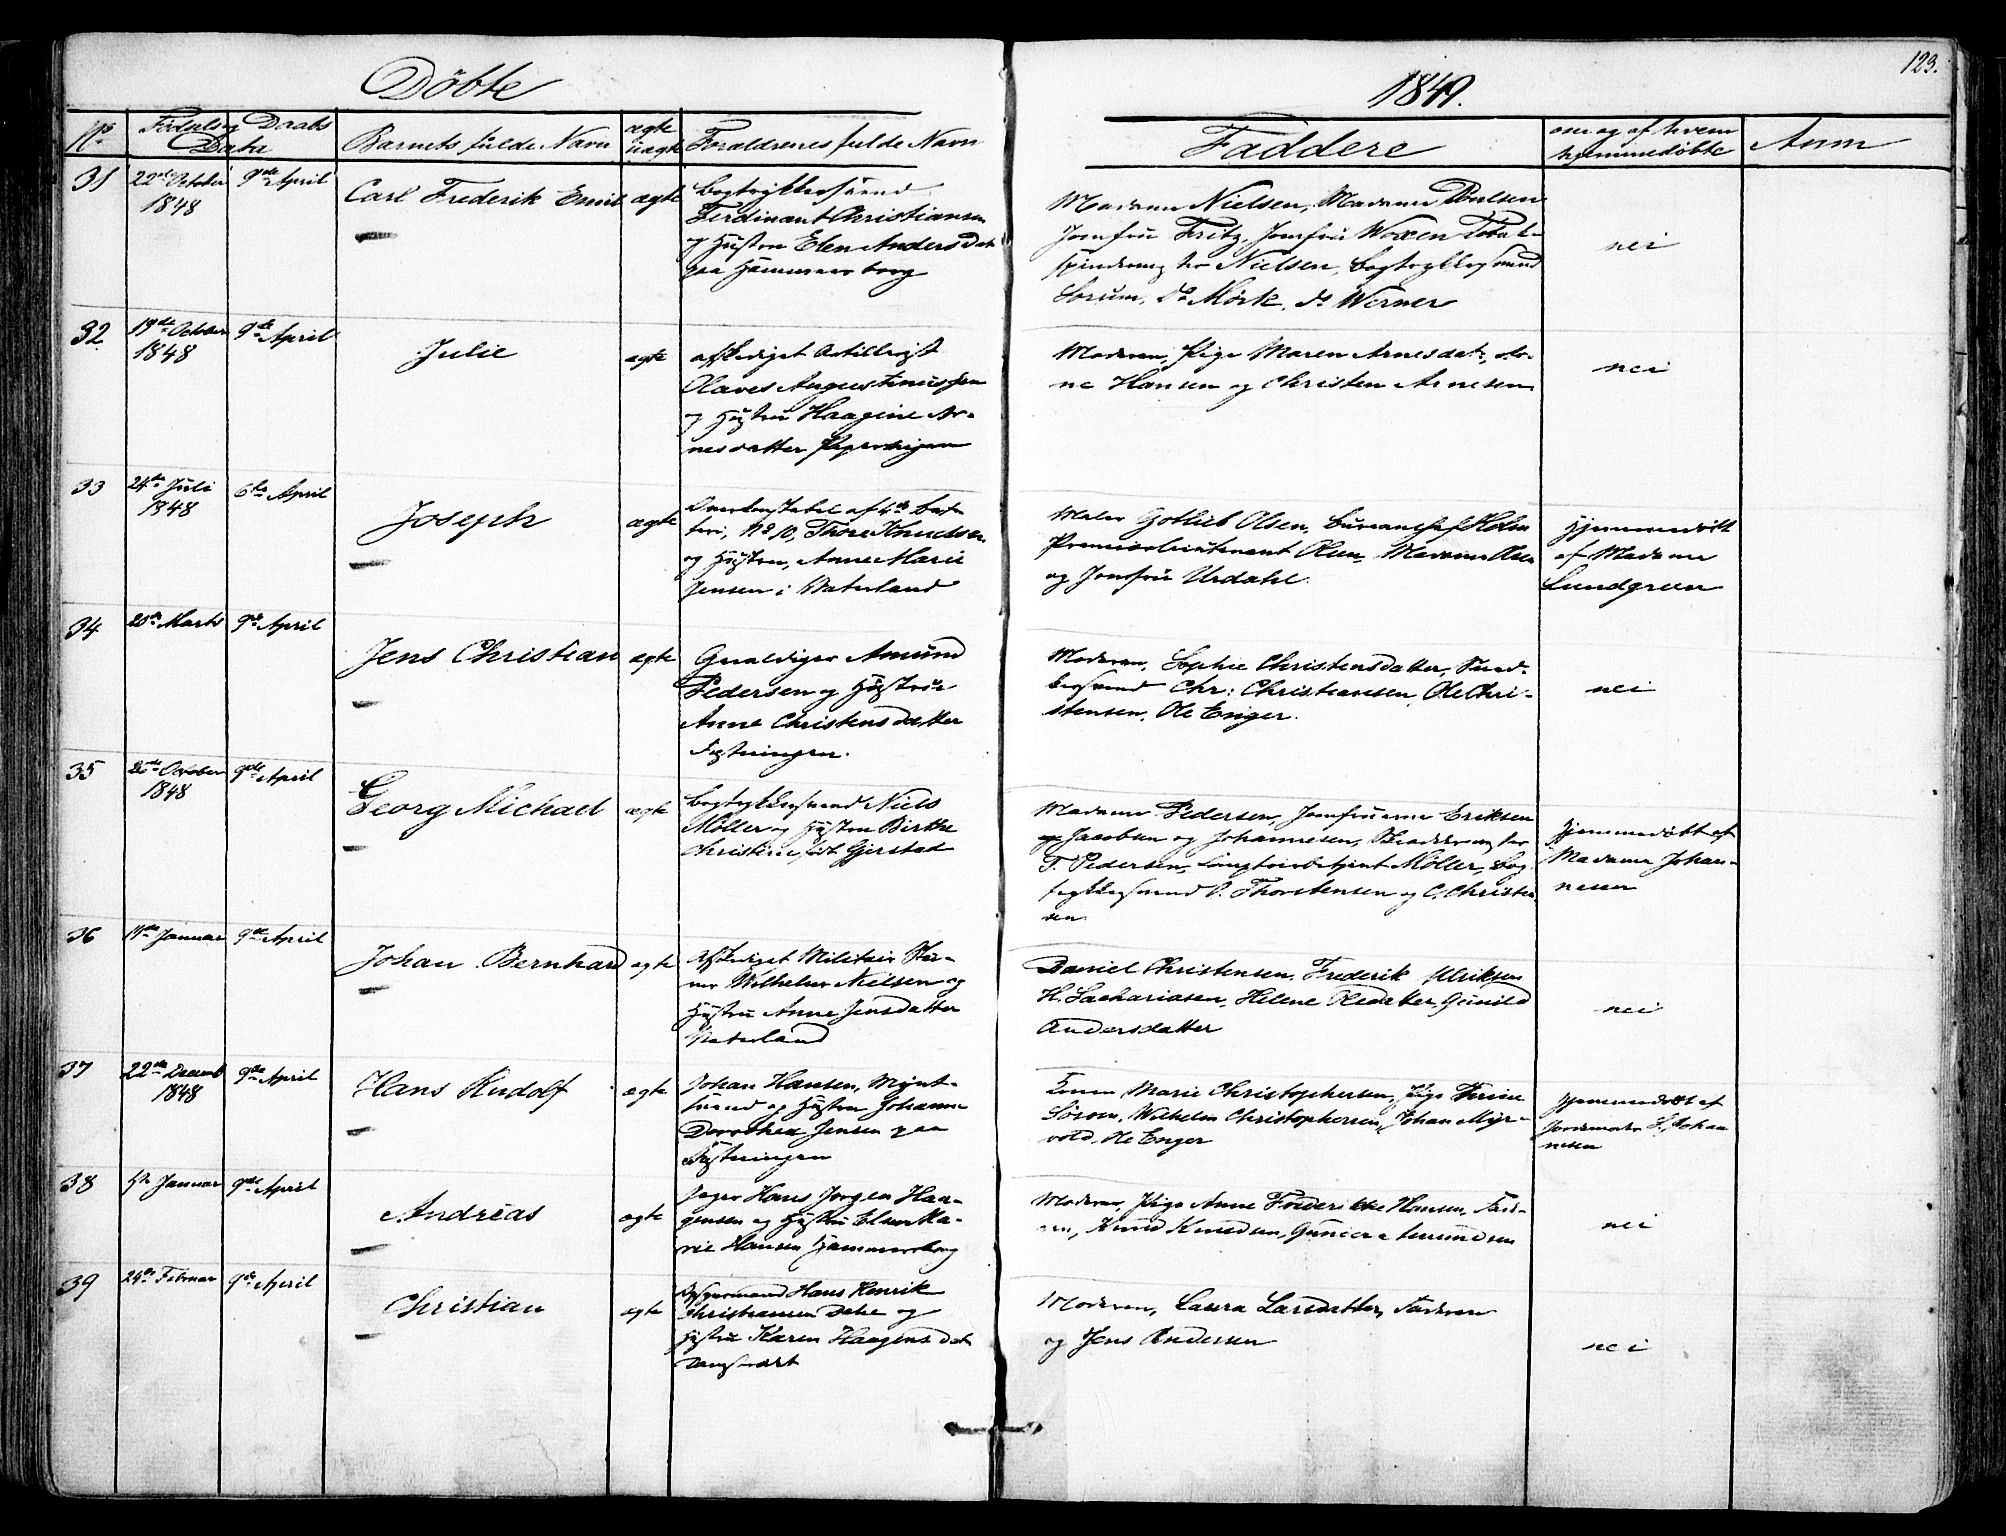 Döbte
1849.
123.
No
Fødsels og Daabs
Data
Barnets fulde Navn
ægte
uægte
Forældrenes fulde Navn
Faddere
om og af hvem
hjemmedøbte
Anm
31
22de October
1848
9de April
Carl Frederik Emil
ægte
Bogtrykkersvend
Ferdinant Christiansen
og Hustru Elen Andersdat
paa Hammersborg
Madame Nielsen, Madame Poulsen
Jomfru Fritz, Jomfru Woxen
Nielsen, Bogtrykkersvend
Sorum, do Mörk, do Werner
nei
32
19de October
1848
9de April
Julie
ægte
afskediget Artillerist
Olaves Augustinussen
og Hustru Haagine Ar-
nesdatter Pipervigen
Moderen, Pige Maren Arnesdat, Ar-
ne Hansen og Christen Arnesen
nei
33
24de Juli
1848
6te April
Joseph
ægte
Overkonstabel af 4de Bat-
teri, No 10, Thore Knudsen
og Hustru, Anne Marie
Jensen i Vaterland
Maler Gotlieb Olsen, Bureauchef Holm
Premierlieutenant Olsen, Madame Olsen
og Jomfru Urdahl.
Hjemmedöbt
af Madame
Lundgreen
34
20de Marts
9de April
Jens Christian
ægte
Gevaldiger Amund
Pedersen og Hustrue
Anne Christensdatter
Fæstningen.
Moderen, Sophie Christensdatter, Sned-
kersvend Chr: Christiansen, Ole Chri-
stensen, Ole Enger.
nei
35
October
1848
9de April
Georg Michael
ægte
Bogtrykkersvend Niels
Möller og Hustru Birthe
Christine född Gjerstad
Madame Pedersen, Jomfruerne Eriksen
og Jacobsen og Johannesen,
T. Pedersen, Möller, Bog-
trykkersvend P. Thorstensen og C. Christen
sen
Hjemmedöbt af
Madame Johan-
nesen
36
Januar
9de April
Johan Bernhard
ægte
Afskediget Militair
Wilhelm Nielsen og
Hustru Anne Jensdatter
Vaterland
Daniel Christensen, Frederik Ulriksen
H. Sachariasen, Helene Oledatter, Gunild
Andersdatter
nei
37
22de Decemb
1848
9de April
Hans Rudolf
ægte
Johan Hansen, Mynt-
svend og Hustru Johanne
Dorothea Jensen paa
Fæstningen
Marie Christophersen, Pige
Wilhelm Christophersen, Johan Myr-
vold, Ole Enger
Hjemmedöbt af
Jordemoder Johan
nesen
38
Januar
9de April
Andreas
ægte
Jæger Hans Jörgen Haa-
gensen og Hustru Elen Ma-
rie Hansen Hammersborg
Moderen, Pige Anne Frederikke Hansen, Fad-
eren, Knud Knudsen, Gunder Amundsen
nei
39
24de Februar
9de April
Christian
ægte
Hans Henrik
Christiansen og
Hustru Karen Haagensdat
Moderen, Laura Larsdatter, Faderen
og Jens Andersen
nei